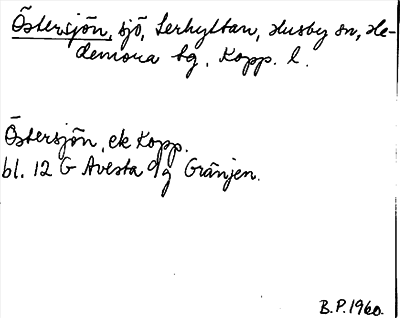 Östersjön, sjö, Lerhyttan, Husby sn, He-
demora tg, Kopp. l.
Östersjön, ek Kopp.
bl. 12 G Avesta 9g Gränjen.
B.P. 1960.